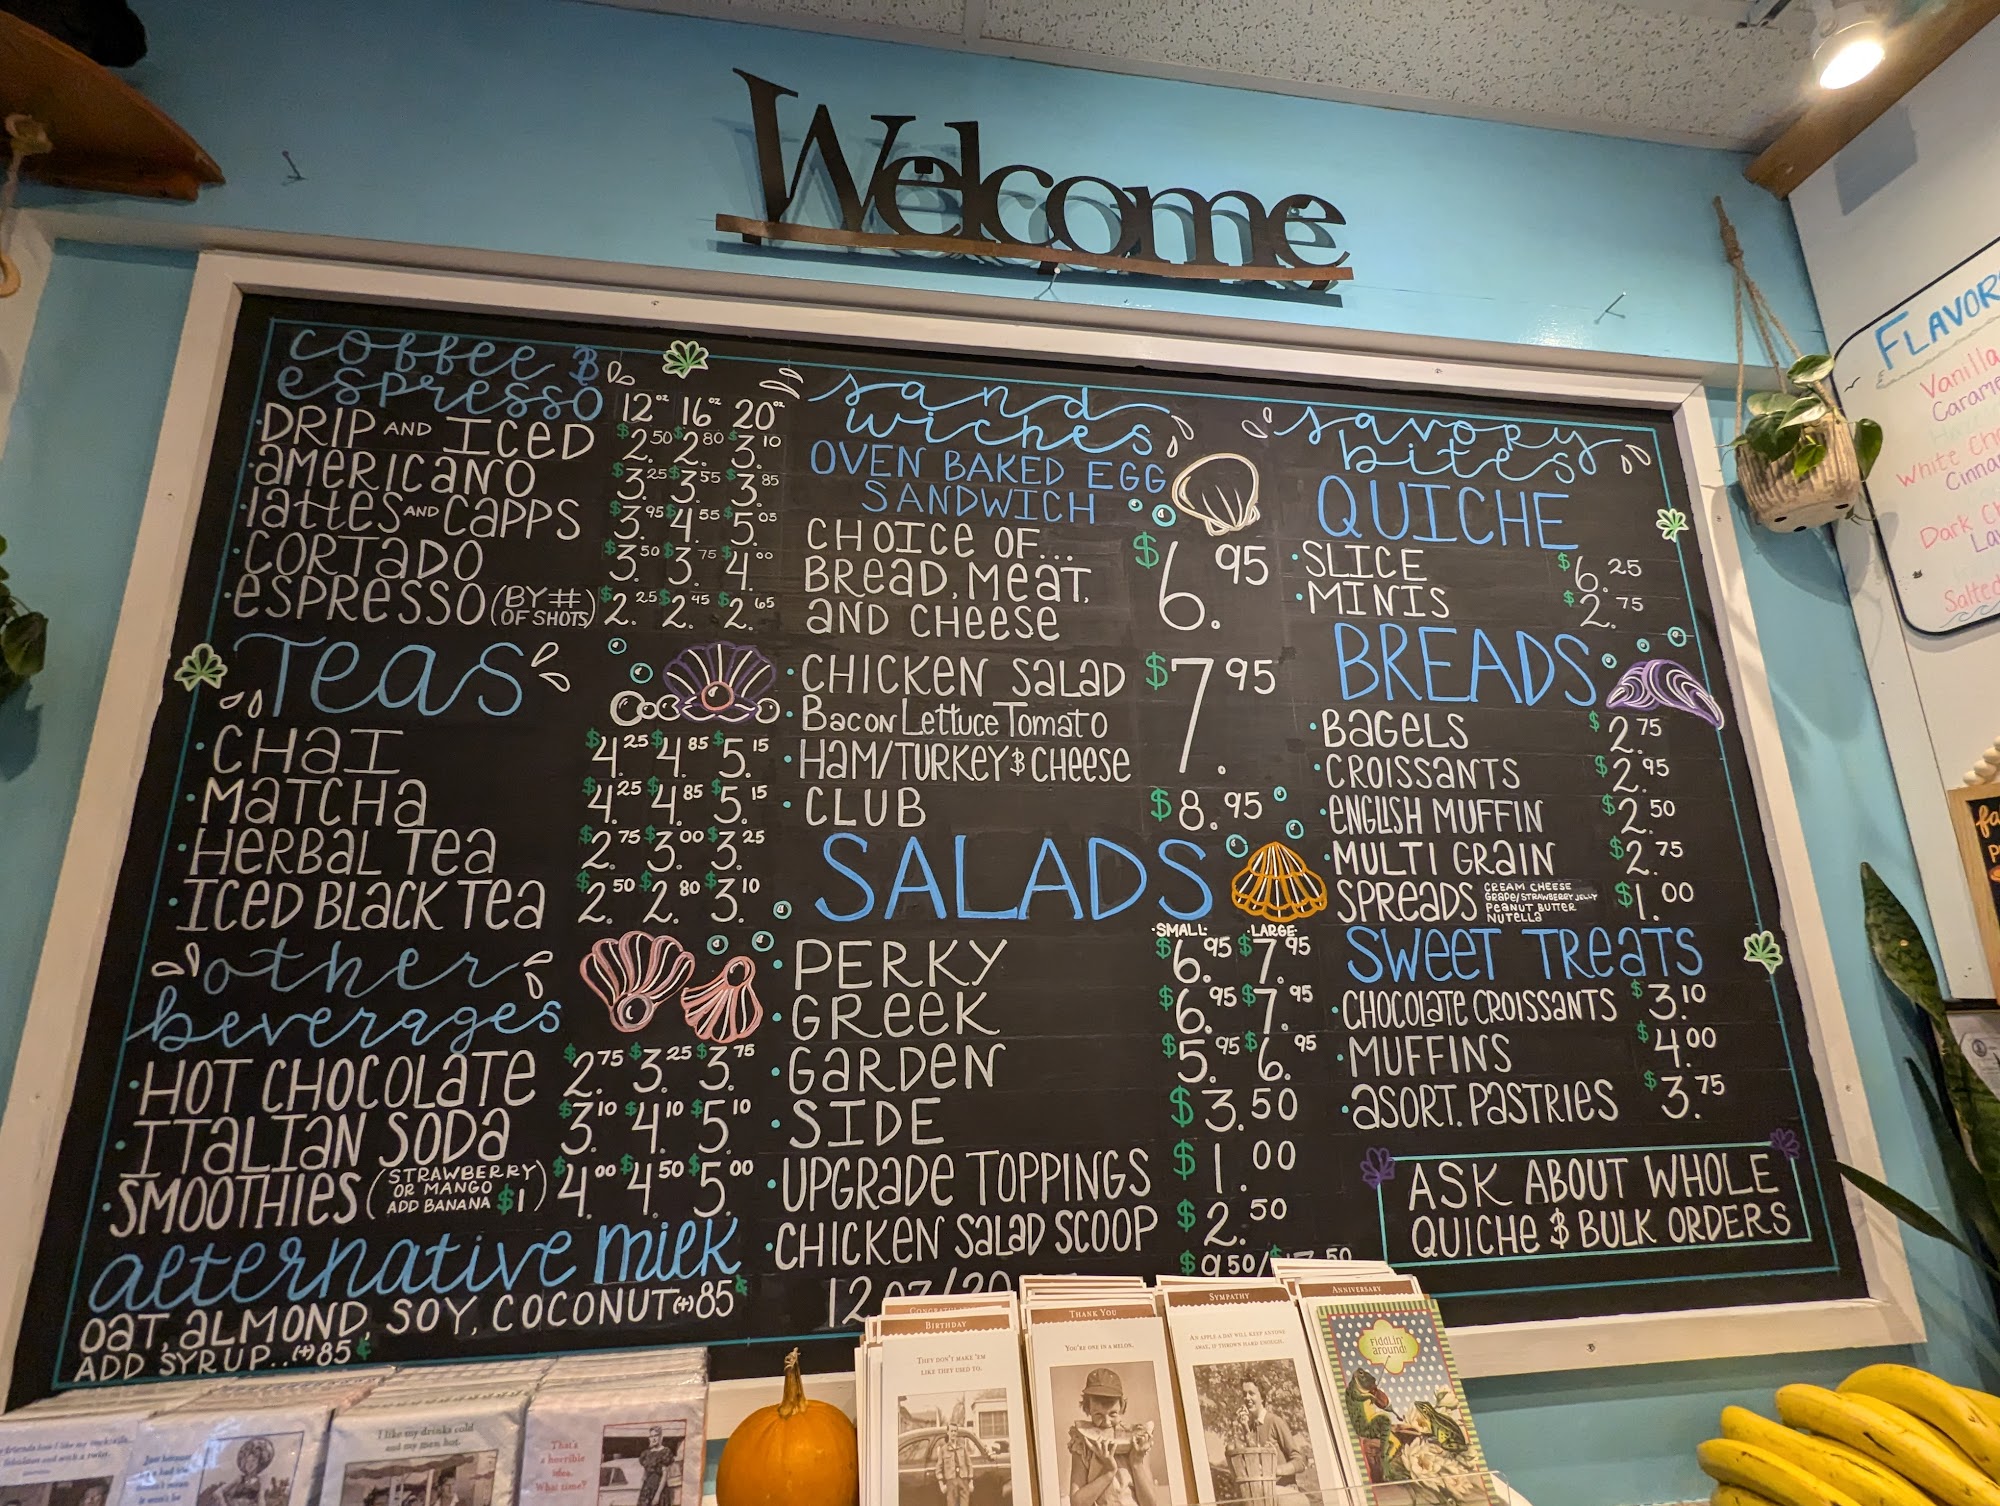 Welcome
coffee &
espresso 12oz 16oz 20oz
DRIP AND ICED $2.50 $2.80 $3.10
·AMERICANO $3.25 $3.55 $3.85
·LATTES AND CAPPS $3.95 $4.55 $5.05
·CORTADO $3.50 $3.75 $4.00
·ESPRESSO (BY # OF SHOTS) $2.25 $2.45 $2.65
TEAS
·CHAI $4.25 $4.85 $5.15
·MATCHA $4.25 $4.85 $5.15
·HERBAL TEA $2.75 $3.00 $3.25
·ICED BLACK TEA $2.50 $2.80 $3.10
other
beverages
·HOT CHOCOLATE $2.75 $3.25 $3.75
·ITALIAN SODA $3.10 $4.10 $5.10
·SMOOTHIES (STRAWBERRY OR MANGO ADD BANANA $1) $4.00 $4.50 $5.00
alternative milk
OAT, ALMOND, SOY, COCONUT (+) 85¢
ADD SYRUP..(+) 85¢
sand
wiches
OVEN BAKED EGG
SANDWICH
CHOICE OF...
BREAD, MEAT,
AND CHEESE
$6.95
·CHICKEN SALAD
·BACON LETTUCE TOMATO
·HAM/TURKEY & CHEESE
$7.95
·CLUB $8.95
SALADS
·SMALL· ·LARGE·
·PERKY $6.95 $7.95
·GREEK $6.95 $7.95
·GARDEN $5.95 $6.95
·SIDE $3.50
·UPGRADE TOPPINGS $1.00
·CHICKEN SALAD SCOOP $2.50
12oz/20 $9.50/
savory
bites
QUICHE
·SLICE $6.25
·MINIS $2.75
BREADS
·BAGELS $2.75
·CROISSANTS $2.95
·ENGLISH MUFFIN $2.50
·MULTI GRAIN $2.75
SPREADS CREAM CHEESE GRAPE/STRAWBERRY JELLY PEANUT BUTTER NUTELLA $1.00
SWEET TREATS
·CHOCOLATE CROISSANTS $3.10
·MUFFINS $4.00
·ASORT. PASTRIES $3.75
ASK ABOUT WHOLE
QUICHE & BULK ORDERS
FLAVORS
Vanilla
Carame
White Ch
Cinna
Dark Ch
La
Salted
BIRTHDAY
THEY DON'T MAKE 'EM
LIKE THEY USED TO.
THANK YOU
YOU'RE ONE IN A MELON.
SYMPATHY
AN APPLE A DAY WILL KEEP ANYONE
AWAY, IF THROWN HARD ENOUGH.
ANNIVERSARY
Fiddlin'
around!
I like my drinks cold
and my men hot.
That's
a horrible
idea.
What time?